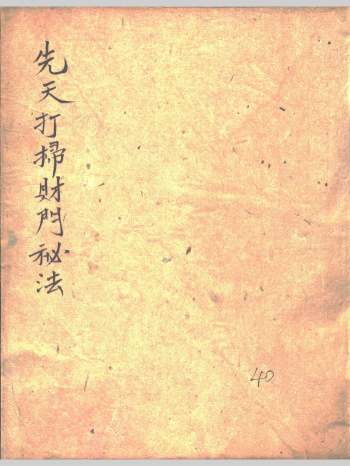 先天打掃財門祕法
40